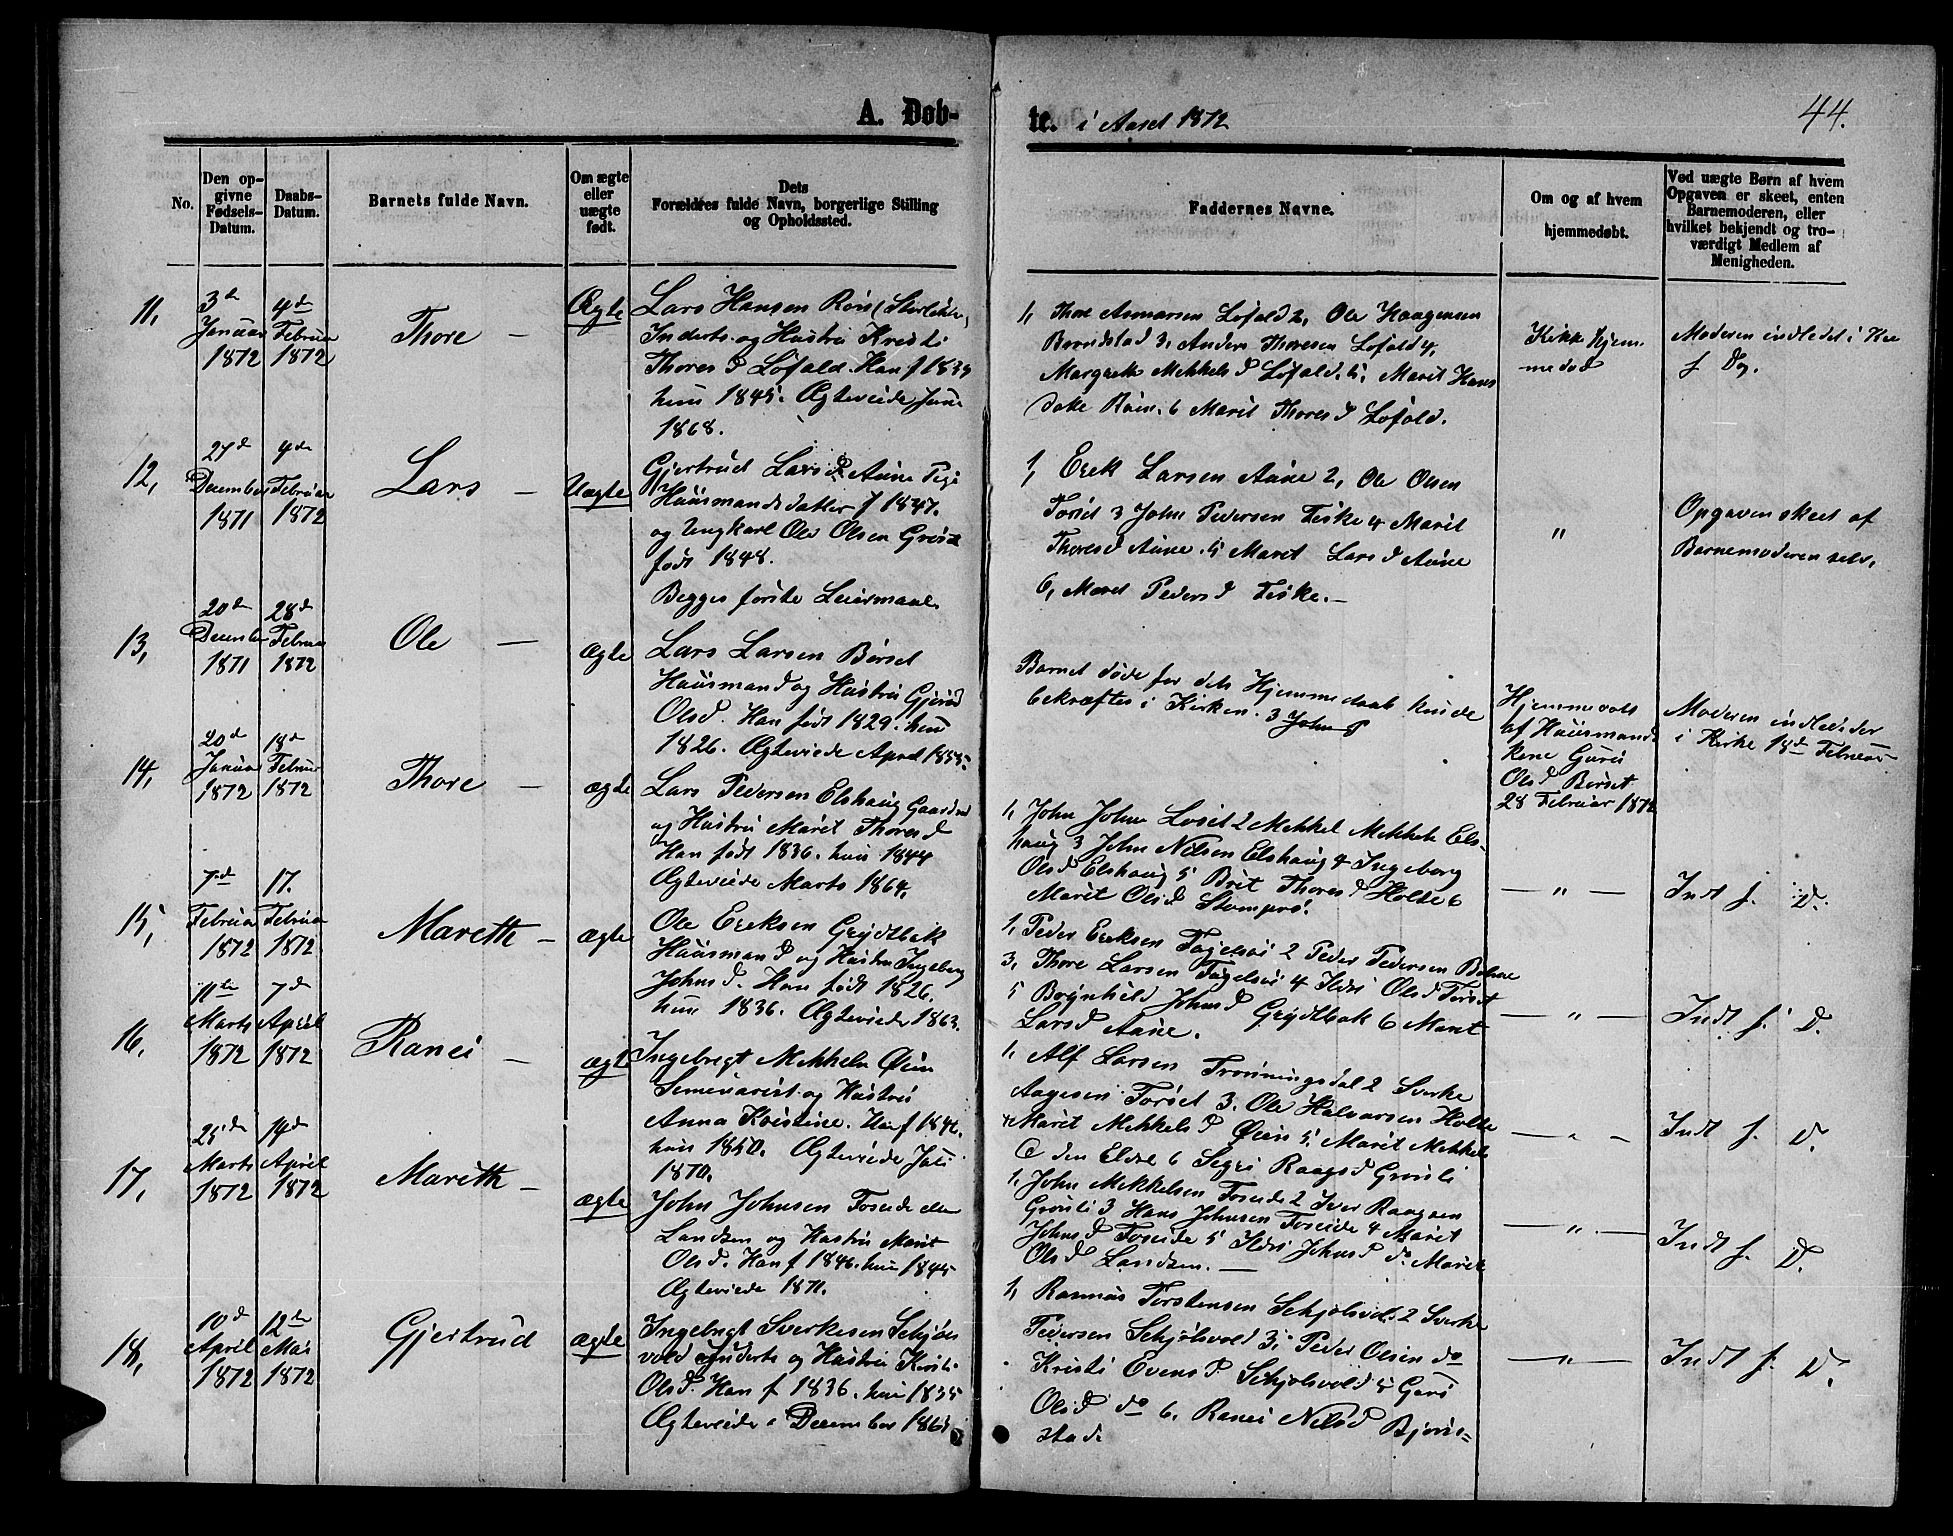 A. Døb-
te. i Aaret 1872
44.
No.
Den op-
givne
Fødsels-
Datum.
Daabs-
Datum.
Barnets fulde Navn.
Om ægte
eller
uægte
født.
Dets
Forældres fulde Navn, borgerlige Stilling
og Opholdssted.
Faddernes Navne.
Om og af hvem
hjemmedøbt.
Ved uægte Børn af hvem
Opgaven er skeet, enten
Barnemoderen, eller
hvilket bekjendt og tro-
værdigt Medlem af
Menigheden.
11,
3de
Januar
1872
4de
Februar
1872
Thore —
Ægte
Lars Hansen
Inderts. og Hustru Kristi
Thores D Løfald. Han f 1839
hun 1845. Ægteviede Juni
1868.
1, Thore Asmarsen Løfald 2, Ole Haagensen
Brundstad 3, Anders Thoresen Løfald 4,
Margrete Mekkels D Løfald. 5, Marit Hans
6 Marit Thores D Løfald.
Ikke Hjem-
medøbt
Moderen indledet i
f D.
12,
27d
December
1871
4de
Februar
1872
Lars —
Uægte
Gjertrud Lars D Aune Pige
Huusmandsdatter f 1847.
og Ungkarl Ole Olsen
født 1848.
Begges første Leiermaal.
1, Erek Larsen Aune 2, Ole Olsen
Torset 3 John Pedersen Fiske 4 Marit
Thores D Aune. 5 Maret Lars D Aune
6, Maret Peders D Fiske. —
"
Opgaven skeet af
Barnemoderen selv,
13,
20de
December
1871
28d
Februar
1872
Ole —
ægte
Lars Larsen Børset
Huusmand og Hustru
Olsd. Han født 1829. hun
1826. Ægteviede April 1855.
Barnet døde før dets Hjemmedaab kunde
bekræftes i Kirken. 3 John P
Hjemmedøbt
af Huusmands
Kone Guru
Ols D Børset
28 Februar 1872
Moderen indleder
i Kirke 18de Februar
14,
20d
Januar
1872
18d
Februar
1872
Thore —
ægte
Lars Pedersen Elshaug Gaardmd
og Hustru Maret Thores D
Han født 1836. hun 1844
Ægteviede Marts 1864.
1, John Johns 2 Mekkel Mekkels Els-
haug 3 John Nilsen Elshaug 4 Ingeborg
Ols D Elshaug 5 Brit Thores D Holte 6
Marit Ols D
— " —
Indt f. D.
15,
7de
Februar
1872
17.
Februar
1872
Mareth —
ægte
Ole Ereksen Grydtbak
Huusmand og Hustru Ingeborg
Johns D. Han født 1826.
hun 1836. Ægteviede 1863.
1, Peder Ereksen 2 Peder Pedersen
3, Thore Larsen 4 Ildri Ols D Torset
5 Brynhild Johns D Grydtbak 6 Maret
Lars D Aune.
— " —
Indt f. D.
16,
11te
Marts
1872
7de
April
1872
Ranei —
ægte
Ingebregt Mekkelsn Øien
Seminarist og Hustru
Anna Kristine. Han f 1846.
hun 1850. Ægteviede Juli
1870.
1, Alf Larsen Tronningsdal 2 Sverke
Aagesen Torset 3. Ole Halvarsen Holte
4 Marit Mekkels D Øien 5. Marit Mekkels
D den Eldre 6 Segri Raags D Grønli
— " —
Indt f. D.
17,
25de
Marts
1872
14de
April
1872
Mareth —
ægte
John Johnsen Foseide eller
Landsem og Hustru Marit
Ols D. Han f 1846. hun 1845
Ægteviede 1871.
1, John Mekkelsen Foseide 2 Iver Raagsen
Grønli 3 Hans Johnsen Foseide 4 Maret
Johns D Foseide 5 Ildri Johns D do Marit
Ols D Landsem. —
— " —
Indt f. D.
18,
10d
April
1872
12te
Mai
1872
Gjertrud
ægte
Ingebregt Sverkesen Schjøls-
vold Inderts og Hustru Kristi
Ols D. Han f 1836. hun 1835
Ægteviede i December 1861
1, Rasmus Torstensen Schjølsvold 2 Sverke
Pedersen Schjølsvold 3, Peder Olsen do
Kristi Evens D Schjølsvold 5 Guru
Ols D do 6. Ranei Nels D Bjørn=
stad.
— " —
Indt f. D.